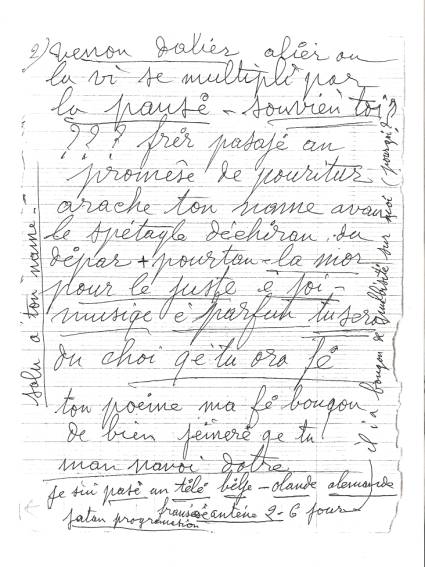 2) venon daliér aliér ou
la vi se multipli par
la pansé - souvien toi?
? ? ? frèr pasajé an
promêse de pouritur
arache ton name avan
le spétagle déchiran du
dépar + pourtan - la mor
pour le juste é joi -
musige é parfun tu sera
du choi qe tu ora fé
ton poème ma fé bougou
de bien jéinerè qe tu
man navoi dotre
je sui pasé an télé bélje - olande alemande
fransèse anténe 2 - 6 jour
fatan programsion
salu a ton name -
il i a bougou de sur moi (pourqoi?